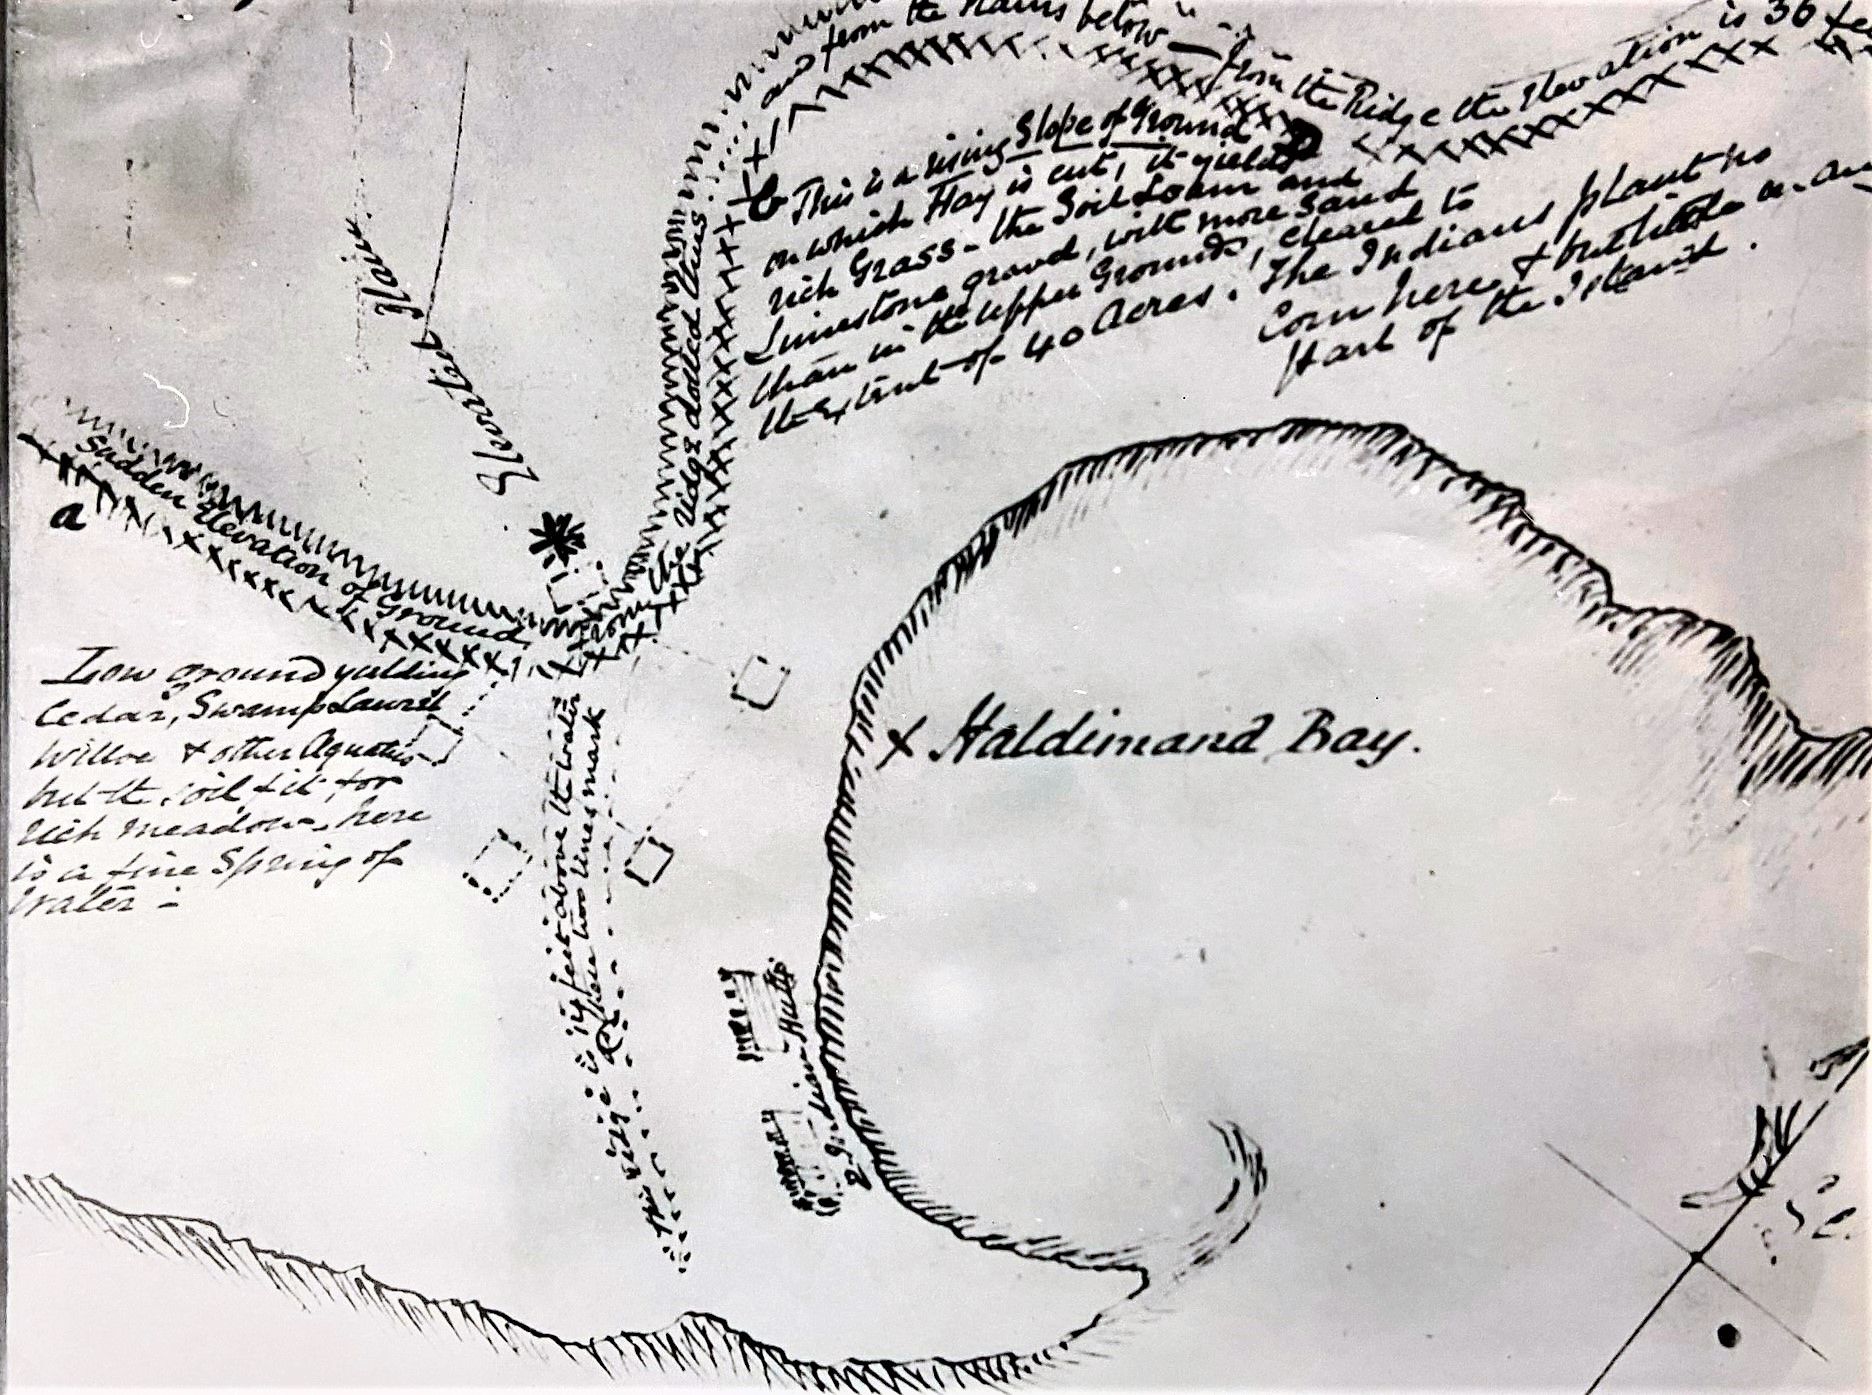 and from the Plains below — from the Ridge the Elevation is 36 fe
b This is a rising Slope of Ground
on which Hay is cut, it yields
rich Grass - the Soil Loam and
Limestone gravel, with more Sand
than in the upper Grounds, cleared to
the extent of 40 Acres. The Indians plant no
Corn here, & but little in an
part of the Island.
Elevated Plain
Sudden Elevation of Ground
a
from the ridge dotted thus
Low ground yielding
Cedar, Swamp Laurel
Willow & other Aquatics
but the soil fit for
rich meadow - here
is a fine Spring of
Water -
This ridge is feet above the water
these two lines mark
2 Indian Hutts
x Haldimand Bay.